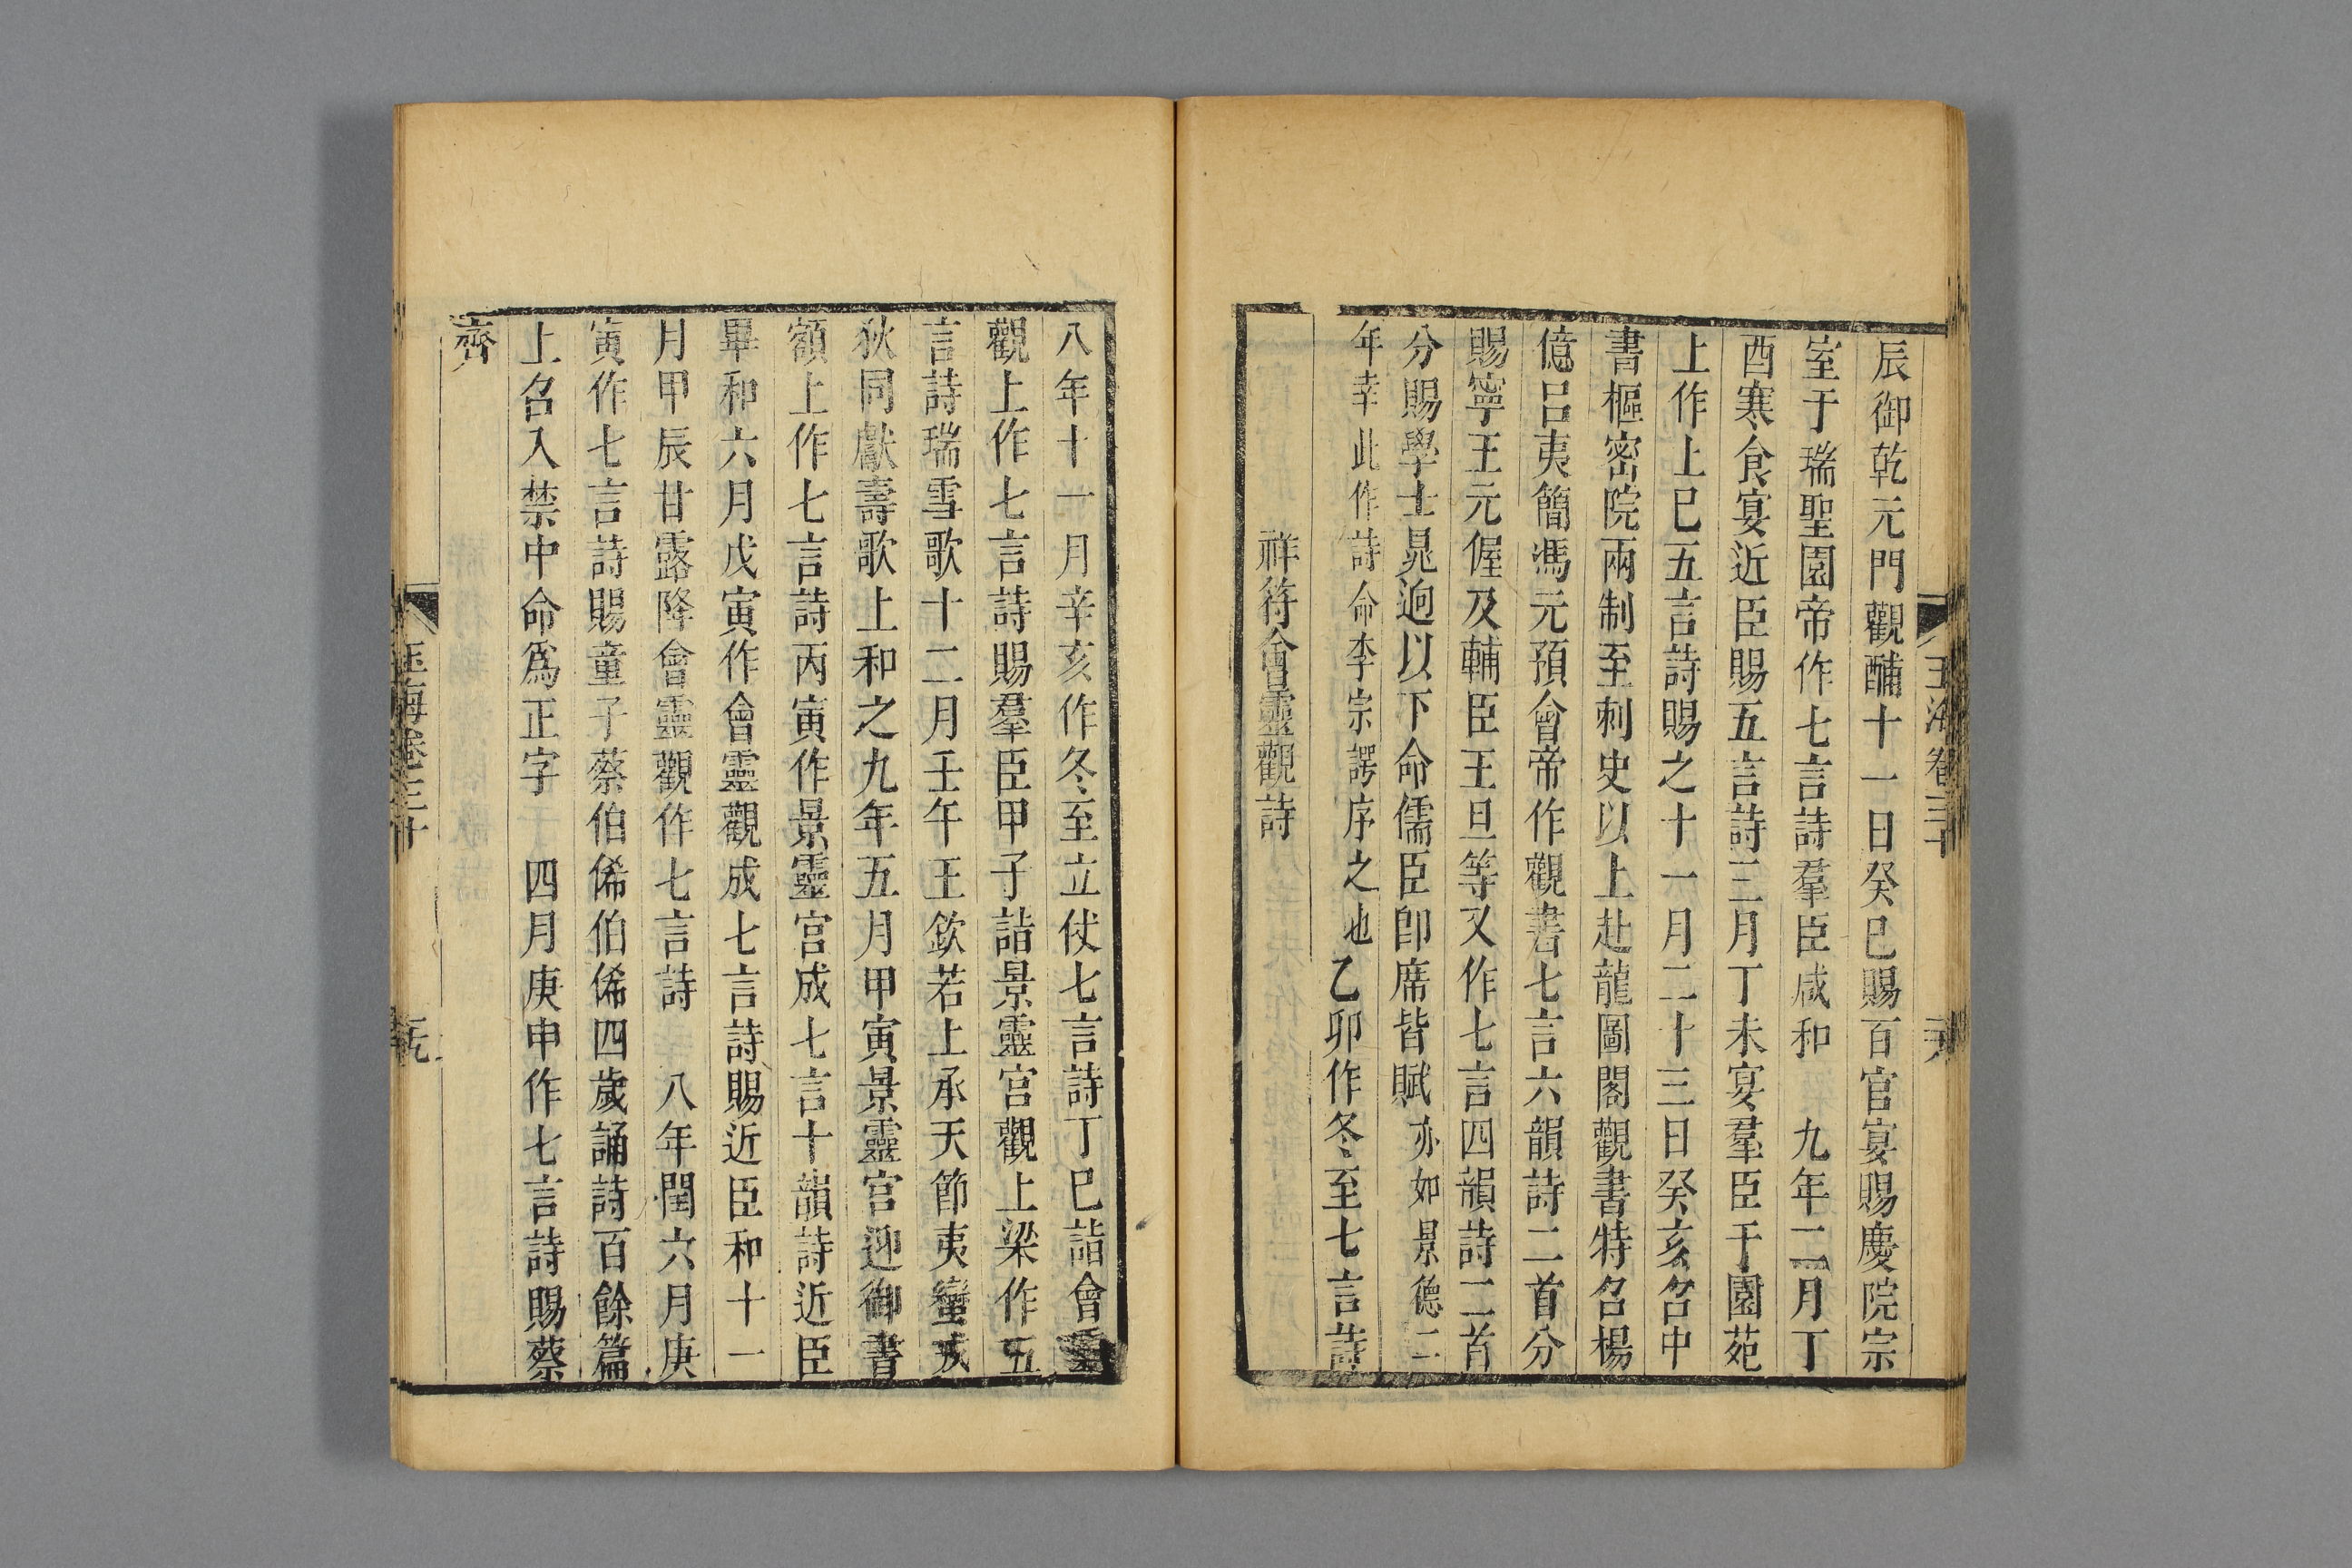 玉海卷三十
辰御乾元門觀酺十一日癸巳賜百官宴賜慶院宗
室于瑞聖園帝作七言詩羣臣咸和　九年二月丁
酉寒食宴近臣賜五言詩三月丁未宴羣臣于園苑
上作上巳五言詩賜之十一月二十三日癸亥召中
書樞密院兩制至刺史以上赴龍圖閣觀書特召楊
億呂夷簡馮元預會帝作觀書七言六韻詩二首分
賜寧王元偓及輔臣王旦等又作七言四韻詩二首
分賜學士晁逈以下命儒臣卽席皆賦亦如景德二
年幸此作詩命李宗諤序之也乙卯作冬至七言詩
祥符會靈觀詩
八年十一月辛亥作冬至立仗七言詩丁巳詣會靈
觀上作七言詩賜羣臣甲子詣景靈宮觀上梁作五
言詩瑞雪歌十二月壬午王欽若上承天節夷蠻戎
狄同獻壽歌上和之九年五月甲寅景靈宮迎御書
額上作七言詩丙寅作景靈宮成七言十韻詩近臣
畢和六月戊寅作會靈觀成七言詩賜近臣和十一
月甲辰甘露降會靈觀作七言詩　八年閏六月庚
寅作七言詩賜童子蔡伯俙伯俙四歲誦詩百餘篇
上召入禁中命爲正字　四月庚申作七言詩賜蔡
齊
玉海卷三十